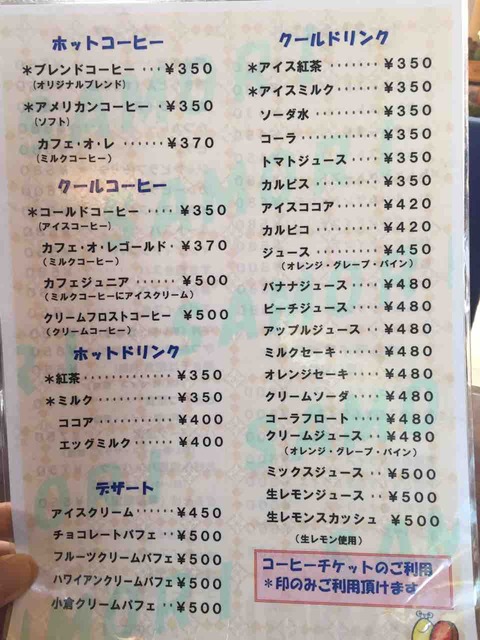 ホットコーヒー
＊ブレンドコーヒー ‥‥￥350
(オリジナルブレンド)
＊アメリカンコーヒー ・￥350
(ソフト)
カフェ・オ・レ ‥‥‥￥370
(ミルクコーヒー)
クールコーヒー
＊コールドコーヒー ‥‥￥350
(アイスコーヒー)
カフェ・オ・レゴールド・￥370
(ミルクコーヒー)
カフェジュニア ‥‥‥￥500
(ミルクコーヒーにアイスクリーム)
クリームフロストコーヒー ￥500
(クリームコーヒー)
ホットドリンク
＊紅茶‥‥‥‥‥‥￥350
＊ミルク‥‥‥‥‥￥350
ココア‥‥‥‥‥￥400
エッグミルク‥‥‥￥400
デザート
アイスクリーム‥‥‥￥450
チョコレートパフェ ‥￥500
フルーツクリームパフェ￥500
ハワイアンクリームパフェ￥500
小倉クリームパフェ ‥￥500
クールドリンク
＊アイス紅茶 ‥‥‥‥￥350
＊アイスミルク‥‥‥‥￥350
ソーダ水 ‥‥‥‥‥￥350
コーラ‥‥‥‥‥‥￥350
トマトジュース‥‥‥￥350
カルピス ‥‥‥‥‥￥350
アイスココア‥‥‥‥￥420
カルピコ ‥‥‥‥‥￥420
ジュース ‥‥‥‥‥￥450
(オレンジ・グレープ・パイン)
バナナジュース‥‥‥￥480
ピーチジュース‥‥‥￥480
アップルジュース‥‥￥480
ミルクセーキ‥‥‥‥￥480
オレンジセーキ‥‥‥￥480
クリームソーダ‥‥‥￥480
コーラフロート‥‥‥￥480
クリームジュース ‥￥480
(オレンジ・グレープ・パイン)
ミックスジュース ‥￥500
生レモンジュース ‥￥500
生レモンスカッシュ ￥500
(生レモン使用)
コーヒーチケットのご利用
＊印のみご利用頂けます